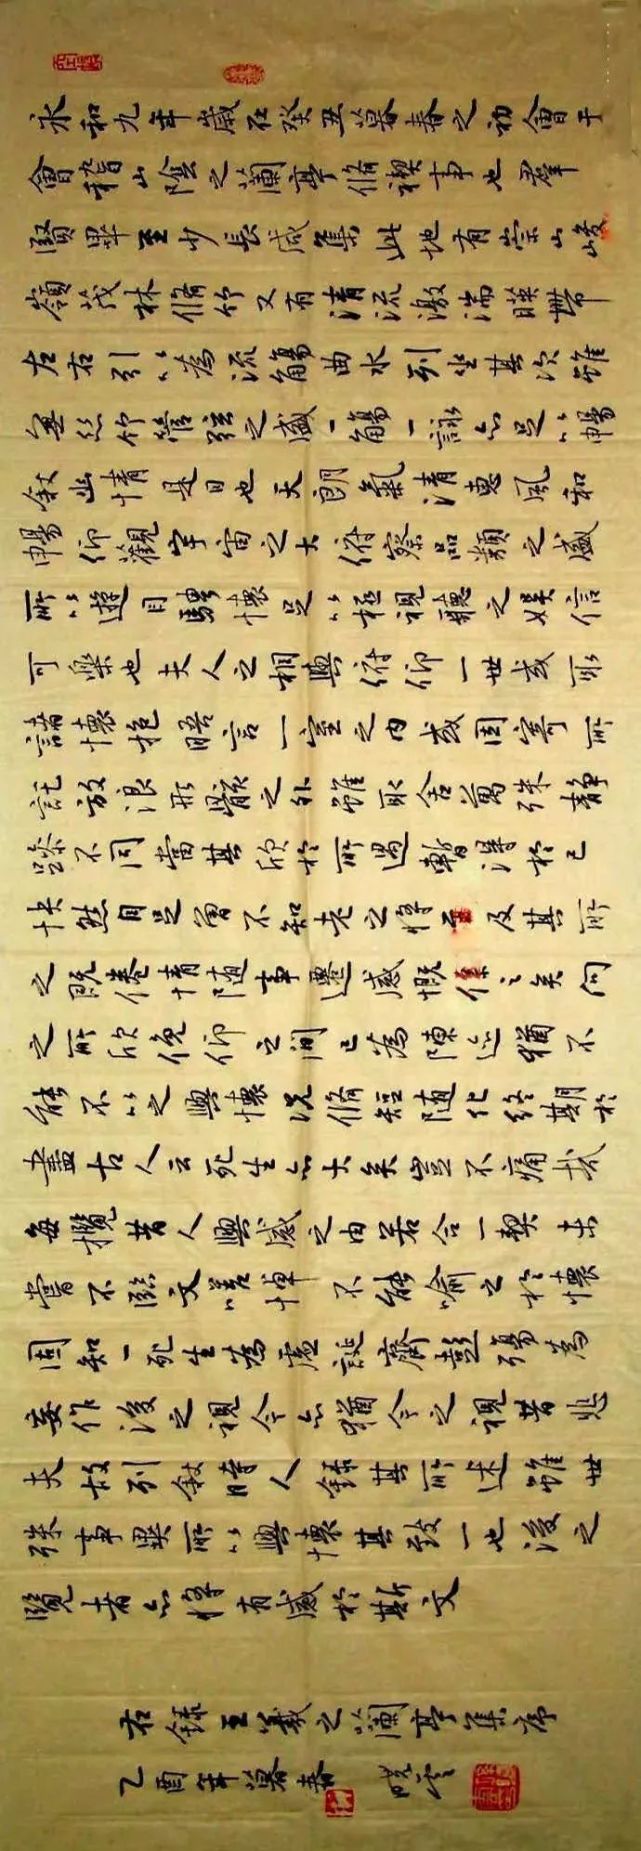 永和九年歲在癸丑暮春之初會于
會稽山陰之蘭亭脩禊事也羣
賢畢至少長咸集此地有崇山峻
嶺茂林脩竹又有清流激湍暎帶
左右引以為流觴曲水列坐其次雖
無絲竹管弦之盛一觴一詠亦足以暢
敘幽情是日也天朗氣清惠風和
暢仰觀宇宙之大俯察品類之盛
所以遊目騁懷足以極視聽之娛信
可樂也夫人之相與俯仰一世或取
諸懷抱晤言一室之內或因寄所
託放浪形骸之外雖取舍萬殊靜
躁不同當其欣於所遇暫得於己
快然自足曾不知老之將至及其所
之既倦情随事遷感慨係之矣向
之所欣俛仰之間已為陳迹猶不
能不以之興懷況脩短随化終期於
盡古人云死生亦大矣豈不痛哉
每攬昔人興感之由若合一契未
嘗不臨文嗟悼不能喻之於懷
固知一死生為虛誕齊彭殤為
妄作後之視今亦猶今之視昔悲
夫故列敘時人錄其所述雖世
殊事異所以興懷其致一也後之
覽者亦將有感於斯文
右錄王羲之蘭亭集序
乙酉年暮春 曉雲